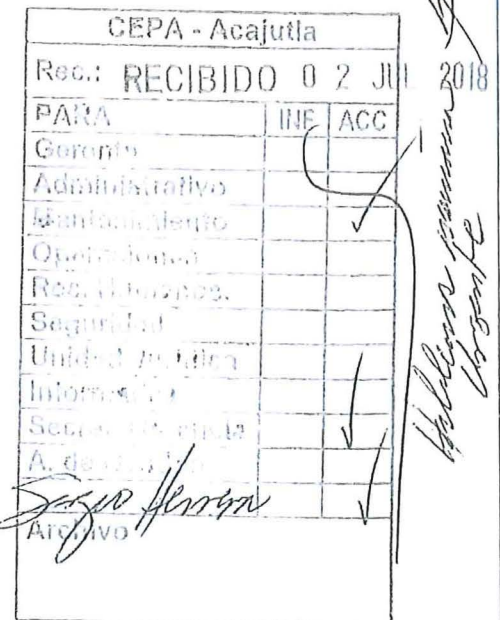 CEPA - Acajutla
Rec.: RECIBIDO 02 JUL 2018
PARA INF ACC
Gerente
Administrativo
Mantenimiento
Operaciones
Rec. Humanos.
Seguridad
Unidad Jurídica
Informática
A. de
Sergio Herrera
Archivo
Urgente